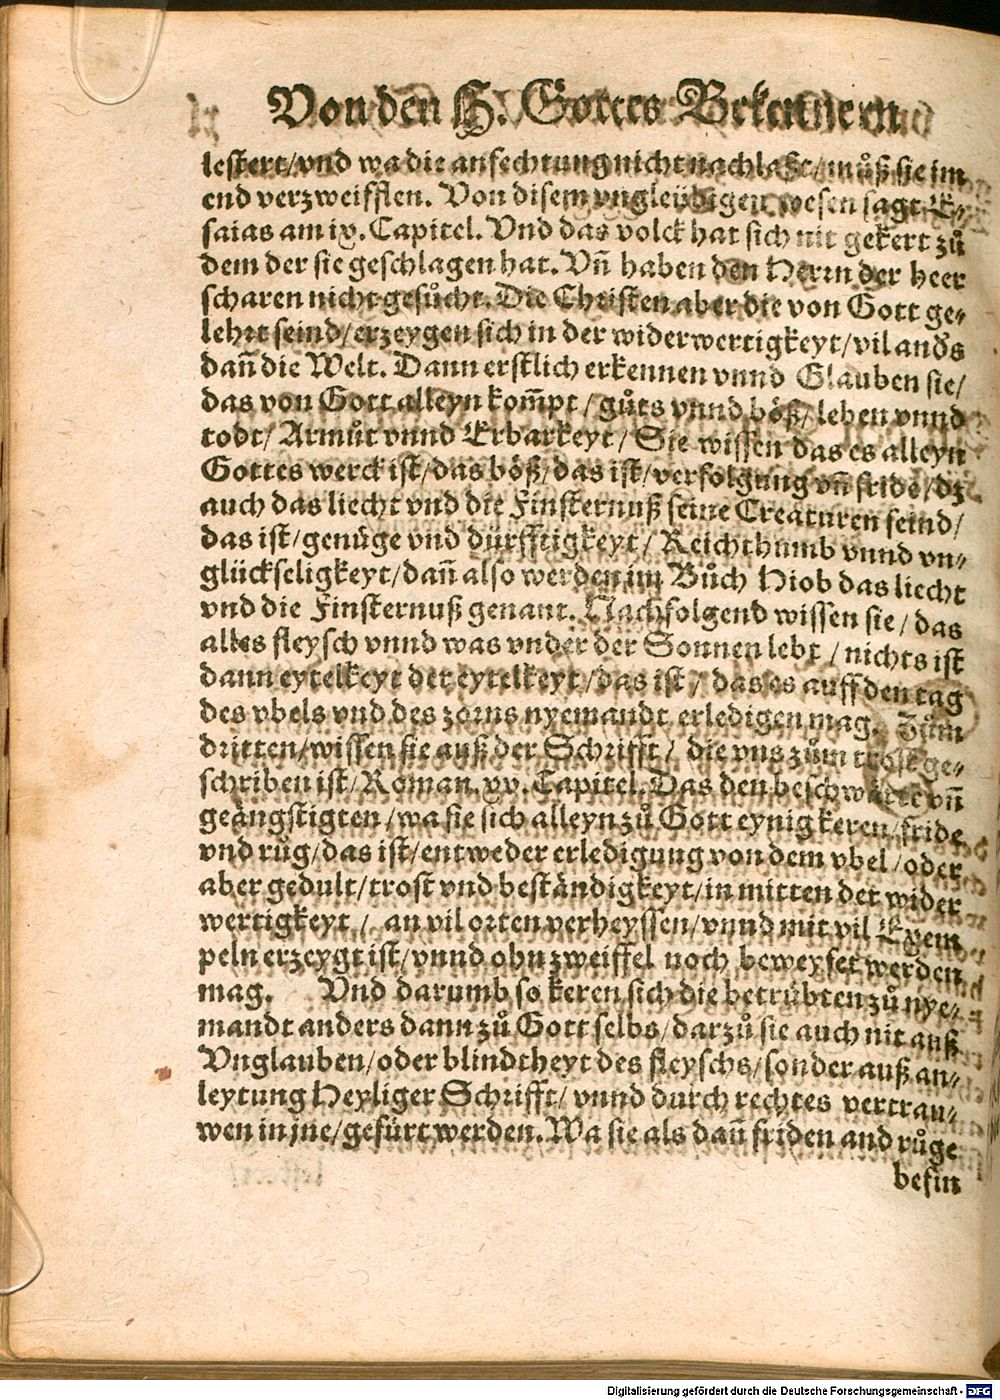 Von den H. Gottes Bekennern
lestert/vnd wa die anfechtung nicht nachlaßt/můß sie im
end verzweifflen. Von disem vngleübigen wesen sagt E⸗
saias am ix. Capitel. Vnd das volck hat sich nit gekert zů
dem der sie geschlagen hat. Vñ haben den Herrn der heer
scharen nicht gesůcht. Die Christen aber die von Gott ge⸗
lehrt seind/erzeygen sich in der widerwertigkeyt/vil anďs
dañ die Welt. Dann erstlich erkennen vnnd Glauben sie/
das von Gott alleyn kom̃pt/gůts vnnd böß/leben vnnd
todt/Armůt vnnd Erbarkeyt/Sie wissen das es alleyn
Gottes werck ist/das böß/das ist/verfolgung vñ fride/dz
auch das liecht vnd die Finsternuß seine Creaturen seind/
das ist/genüge vnd dürfftigkeyt/Reichthumb vnnd vn⸗
glückseligkeyt/dañ also werden im Bůch Hiob das liecht
vnd die Finsternuß genant. Nachfolgend wissen sie/das
alles fleysch vnnd was vnder der Sonnen lebt/nichts ist
dann eytelkeyt der eytelkeyt/das ist/das es auff den tag
des vbels vnd des zorns nyemandt erledigen mag. Zům
dritten/wissen sie auß der Schrifft/die vns zům trost ge⸗
schriben ist/Roman. xv. Capitel. Das den beschwärte vñ
geängstigten/wa sie sich alleyn zů Gott eynig keren/fride
vnd růg/das ist/entweder erledigung von dem vbel/oder
aber gedult/trost vnd beständigkeyt/in mitten der wider
wertigkeyt/an vil orten verheyssen/vnnd mit vil Exem
peln erzeygt ist/vnnd ohn zweiffel noch beweyset werden
mag. Vnd darumb so keren sich die betrübten zů nye⸗
mandt anders dann zů Gott selbs/darzů sie auch nit auß
Vnglauben/oder blindtheyt des fleyschs/sonder auß an⸗
leytung Heyliger Schrifft/vnnd durch rechtes vertrau⸗
wen in jne/gefürt werden. Wa sie als dañ friden and růge
befin
Digitalisierung gefördert durch die Deutsche Forschungsgemeinschaft - DFG